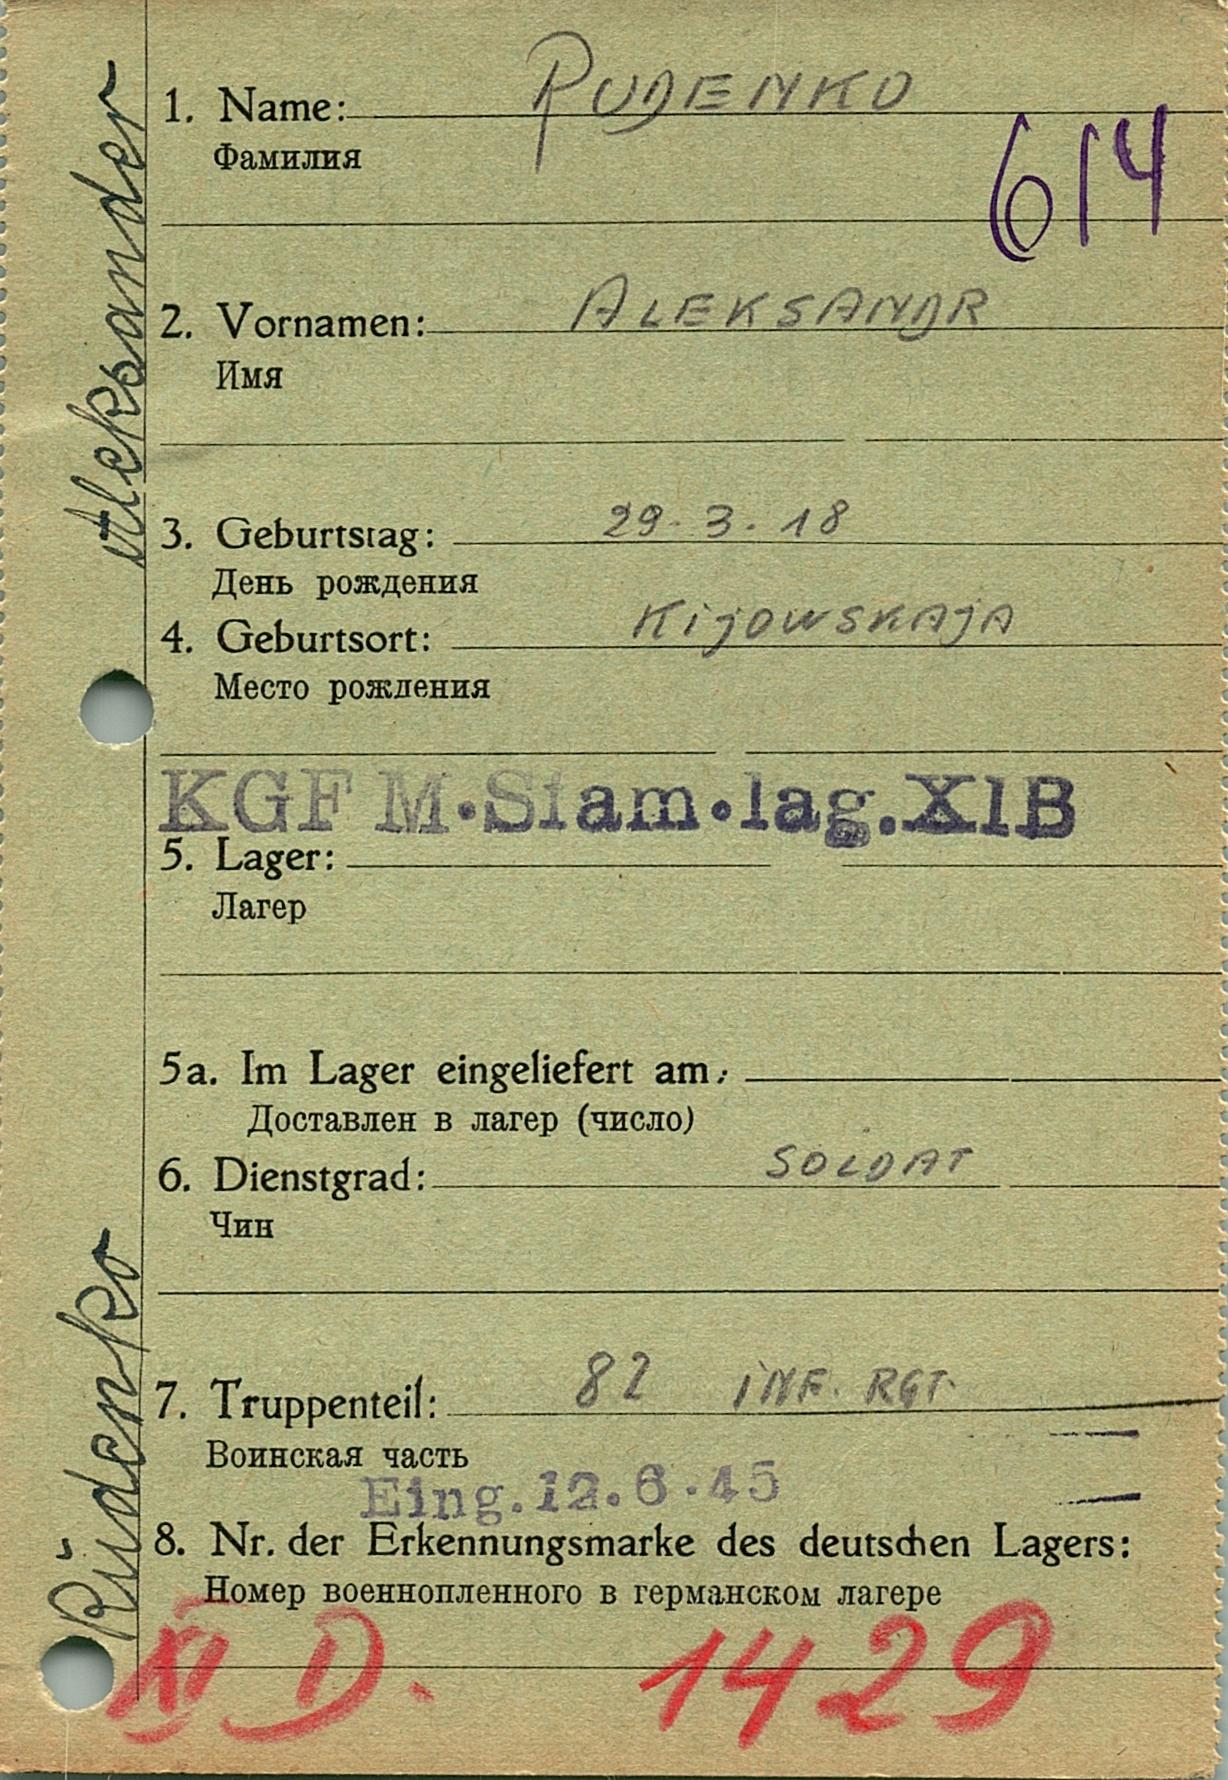 1. Name: RUDENKO
Фамилия
614
2. Vornamen: ALEKSANDR
Имя
3. Geburtstag: 29. 3. 18
День рождения
4. Geburtsort: KijOWSKAjA
Место рождения
KGF M·Stam·lag.XIB
5. Lager:
Лагер
5a. Im Lager eingeliefert am:
Доставлен в лагер (число)
6. Dienstgrad: SOLDAT
Чин
7. Truppenteil: 82 INF. RGT.
Воинская часть
Eing.12.6.45
8. Nr. der Erkennungsmarke des deutschen Lagers:
Номер военнопленного в германском лагере
XI D. 1429
Rudenko Aleksander